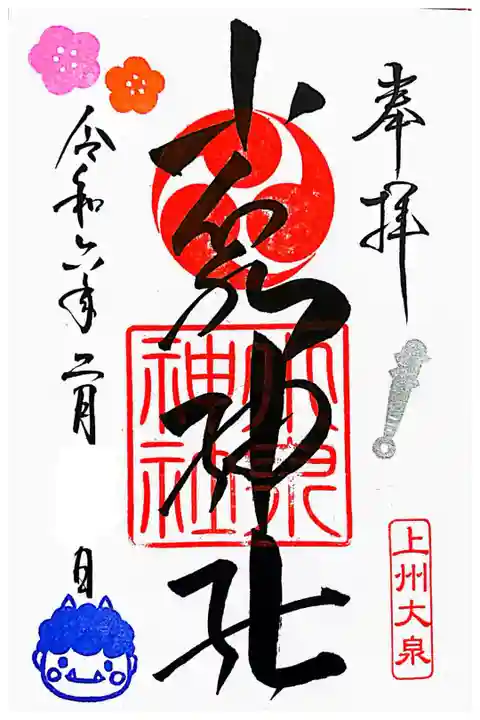 奉拝
上州大泉
小泉神社
小泉
神社
令和六年二月 日